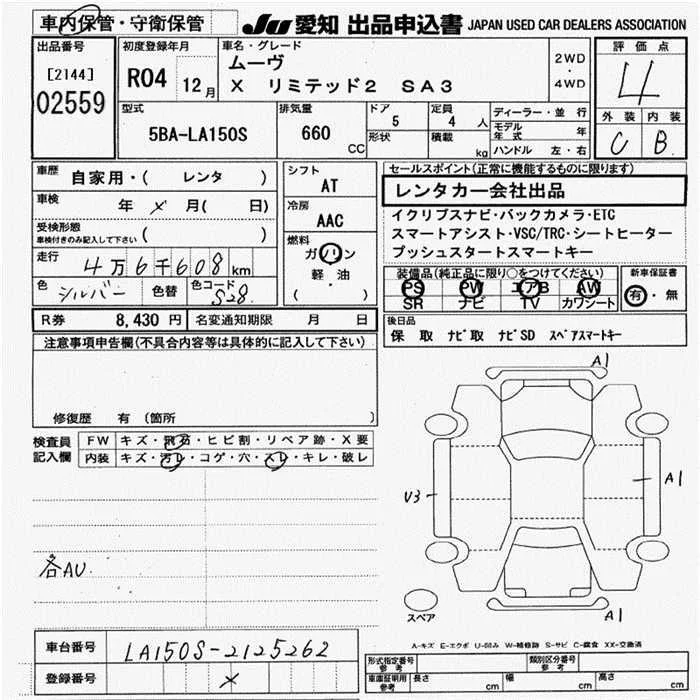 車内保管・守衛保管
JU 愛知 出品申込書 JAPAN USED CAR DEALERS ASSOCIATION
出品番号
[2144]
02559
初度登録年月
R04 12月
車名・グレード
ムーヴ
X リミテッド2 SA3
2WD
・
4WD
評価点
4
外装 内装
C B
型式
5BA-LA150S
排気量
660 CC
ドア 5
形状
定員 4 人
積載 kg
ディーラー・並行
モデル年式 年
ハンドル 左・右
車歴 自家用・( レンタ )
車検 年 メ 月( 日)
受検形態
車検付きのみ記入して下さい ( )
走行 4万6千608km
色 シルバー 色替 色コード S28
シフト
AT
冷房
AAC
燃料
ガソリン
軽・油
( )
セールスポイント(正常に機能するものに限ります)
レンタカー会社出品
イクリプスナビ・バックカメラ・ETC
スマートアシスト・VSC/TRC・シートヒーター
プッシュスタートスマートキー
装備品(純正品に限り○をつけてください)
PS PW エアB AW
SR ナビ TV カワシート
新車保証書
有・無
R券 8,430 円 名変通知期限 月 日
後日品
保 取 ナビ取 ナビSD スペアスマートキー
注意事項申告欄(不具合内容等は具体的に記入して下さい)
修復歴 有 (箇所 )
検査員
記入欄
FW キズ・飛石・ヒビ割・リペア跡・X要
内装 キズ・汚レ・コゲ・穴・スレ・キレ・破レ
各AU
A1
U3
A1
A1
スペア
A-キズ E-エクボ U-凹み W-補修跡 S-サビ C-腐食 XX-交換済
車台番号 LA150S-2125262
登録番号 メ
形式指定番号
参考
類別区分番号
参考
車庫証明用
参考
長さ cm 幅 cm 高さ cm